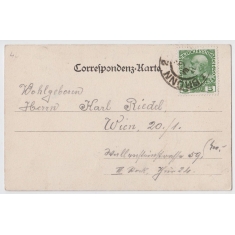 Correspondenz-Karte
BRÜNN
5
Wohlgeboren
Herrn Karl Riedel
Wien, 20/1.
Wallensteinstraße 59
II Stock, Thür 24